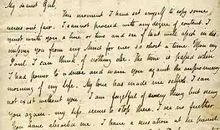 My dearest Girl,
This moment I have set myself to copy some
verses out fair. I cannot proceed with any degree of content. I
must write you a line or two and see if that will assist in dis
missing you from my Mind for ever so short a time. Upon my
Soul I can think of nothing else. The time is passed when
I had power to advise and warn you against the unpromising
morning of my Life. My love has made me selfish. I can
not exist without you. I am forgetful of every thing but seeing
you again. my Life seems to stop there. I see no further.
You have absorb'd me. I have a sensation at the present